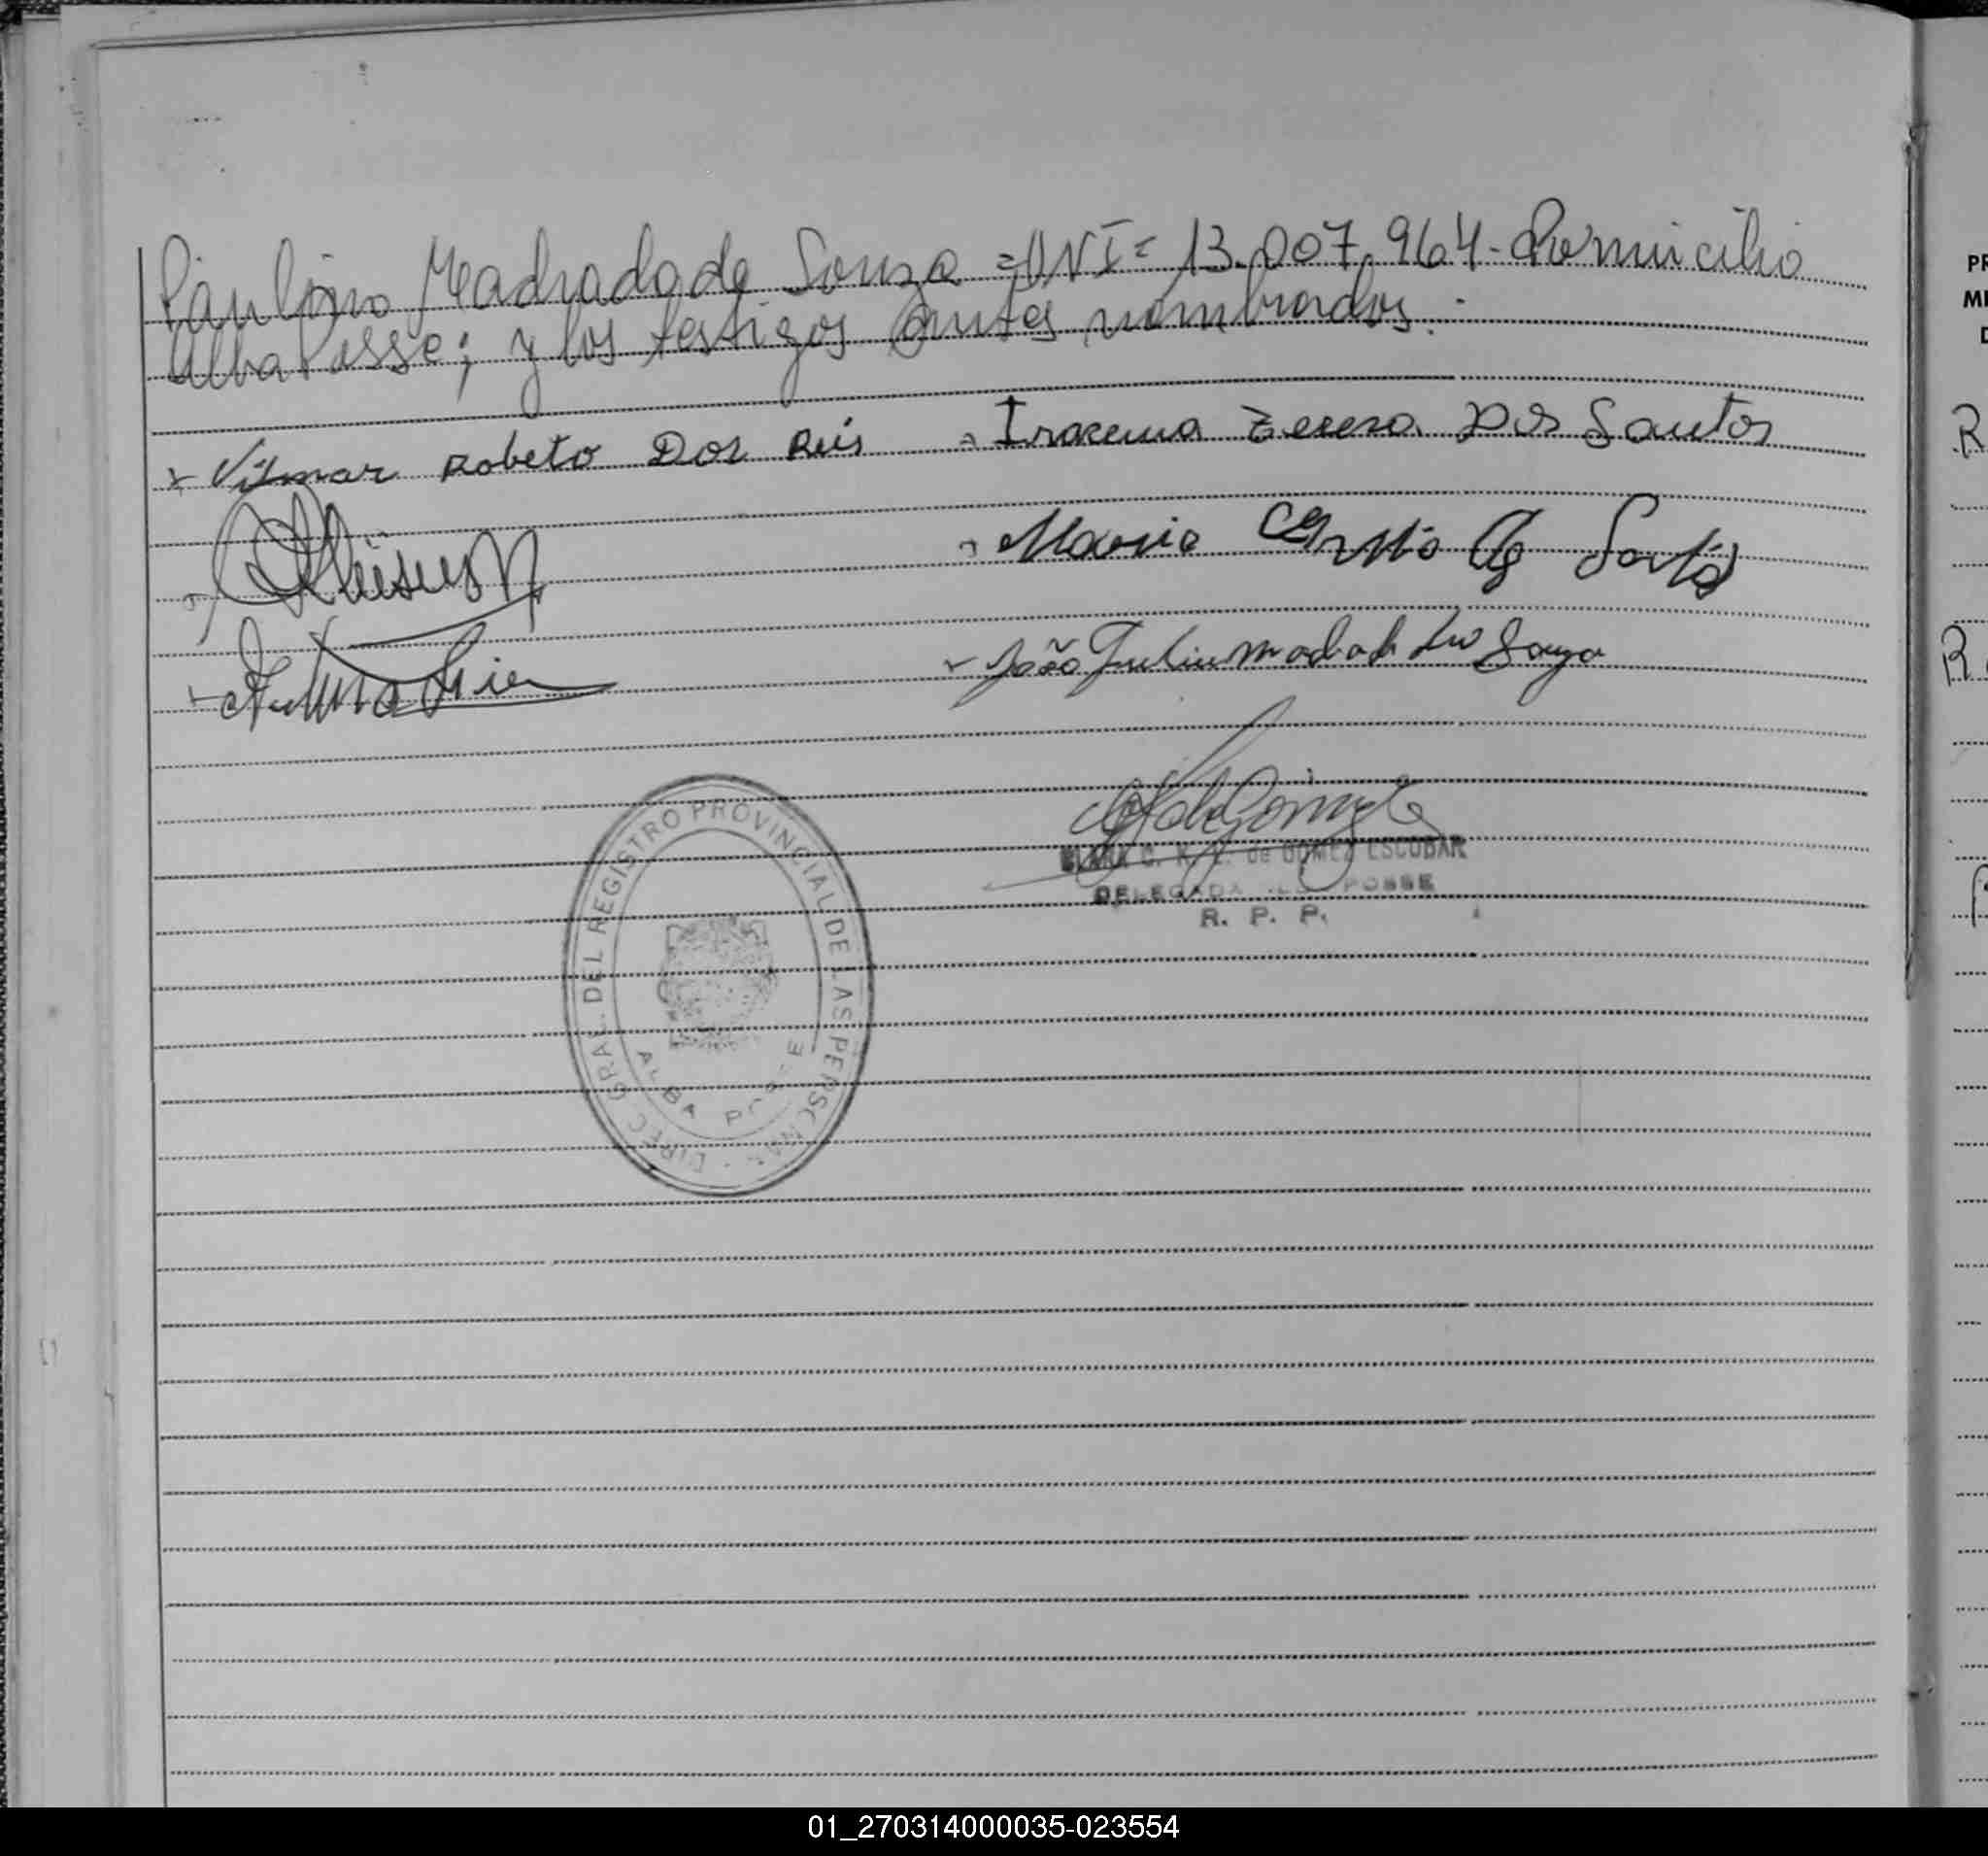 Paulino Machado de Souza = DNI = 13.007.964 - Domicilio
Alba Posse; y los testigos antes nombrados. -
Vilmar Robeto Dos Reis
- Iracema Teresa Dos Santos
- Maria
- João Machado Souza
de GOMEZ ESCOBAR
DELEGADA POSSE
R. P. P.
DIREC GRAL. DEL REGISTRO PROVINCIAL DE LAS PERSONAS
ALBA POSSE
PR
MI
D
R
R
01_270314000035-023554